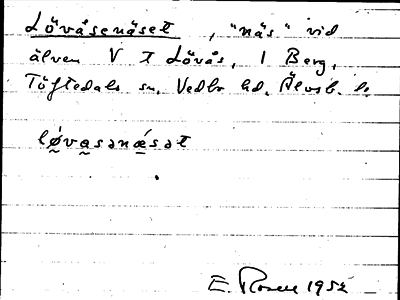 Lövåsenäset, "näs" vid
älven V t Lövås, 1 Berg,
Töftedals sn, Vedbo hd, Älvsb. l.
lǿva̰sənǽsət
E. Rosen 1952